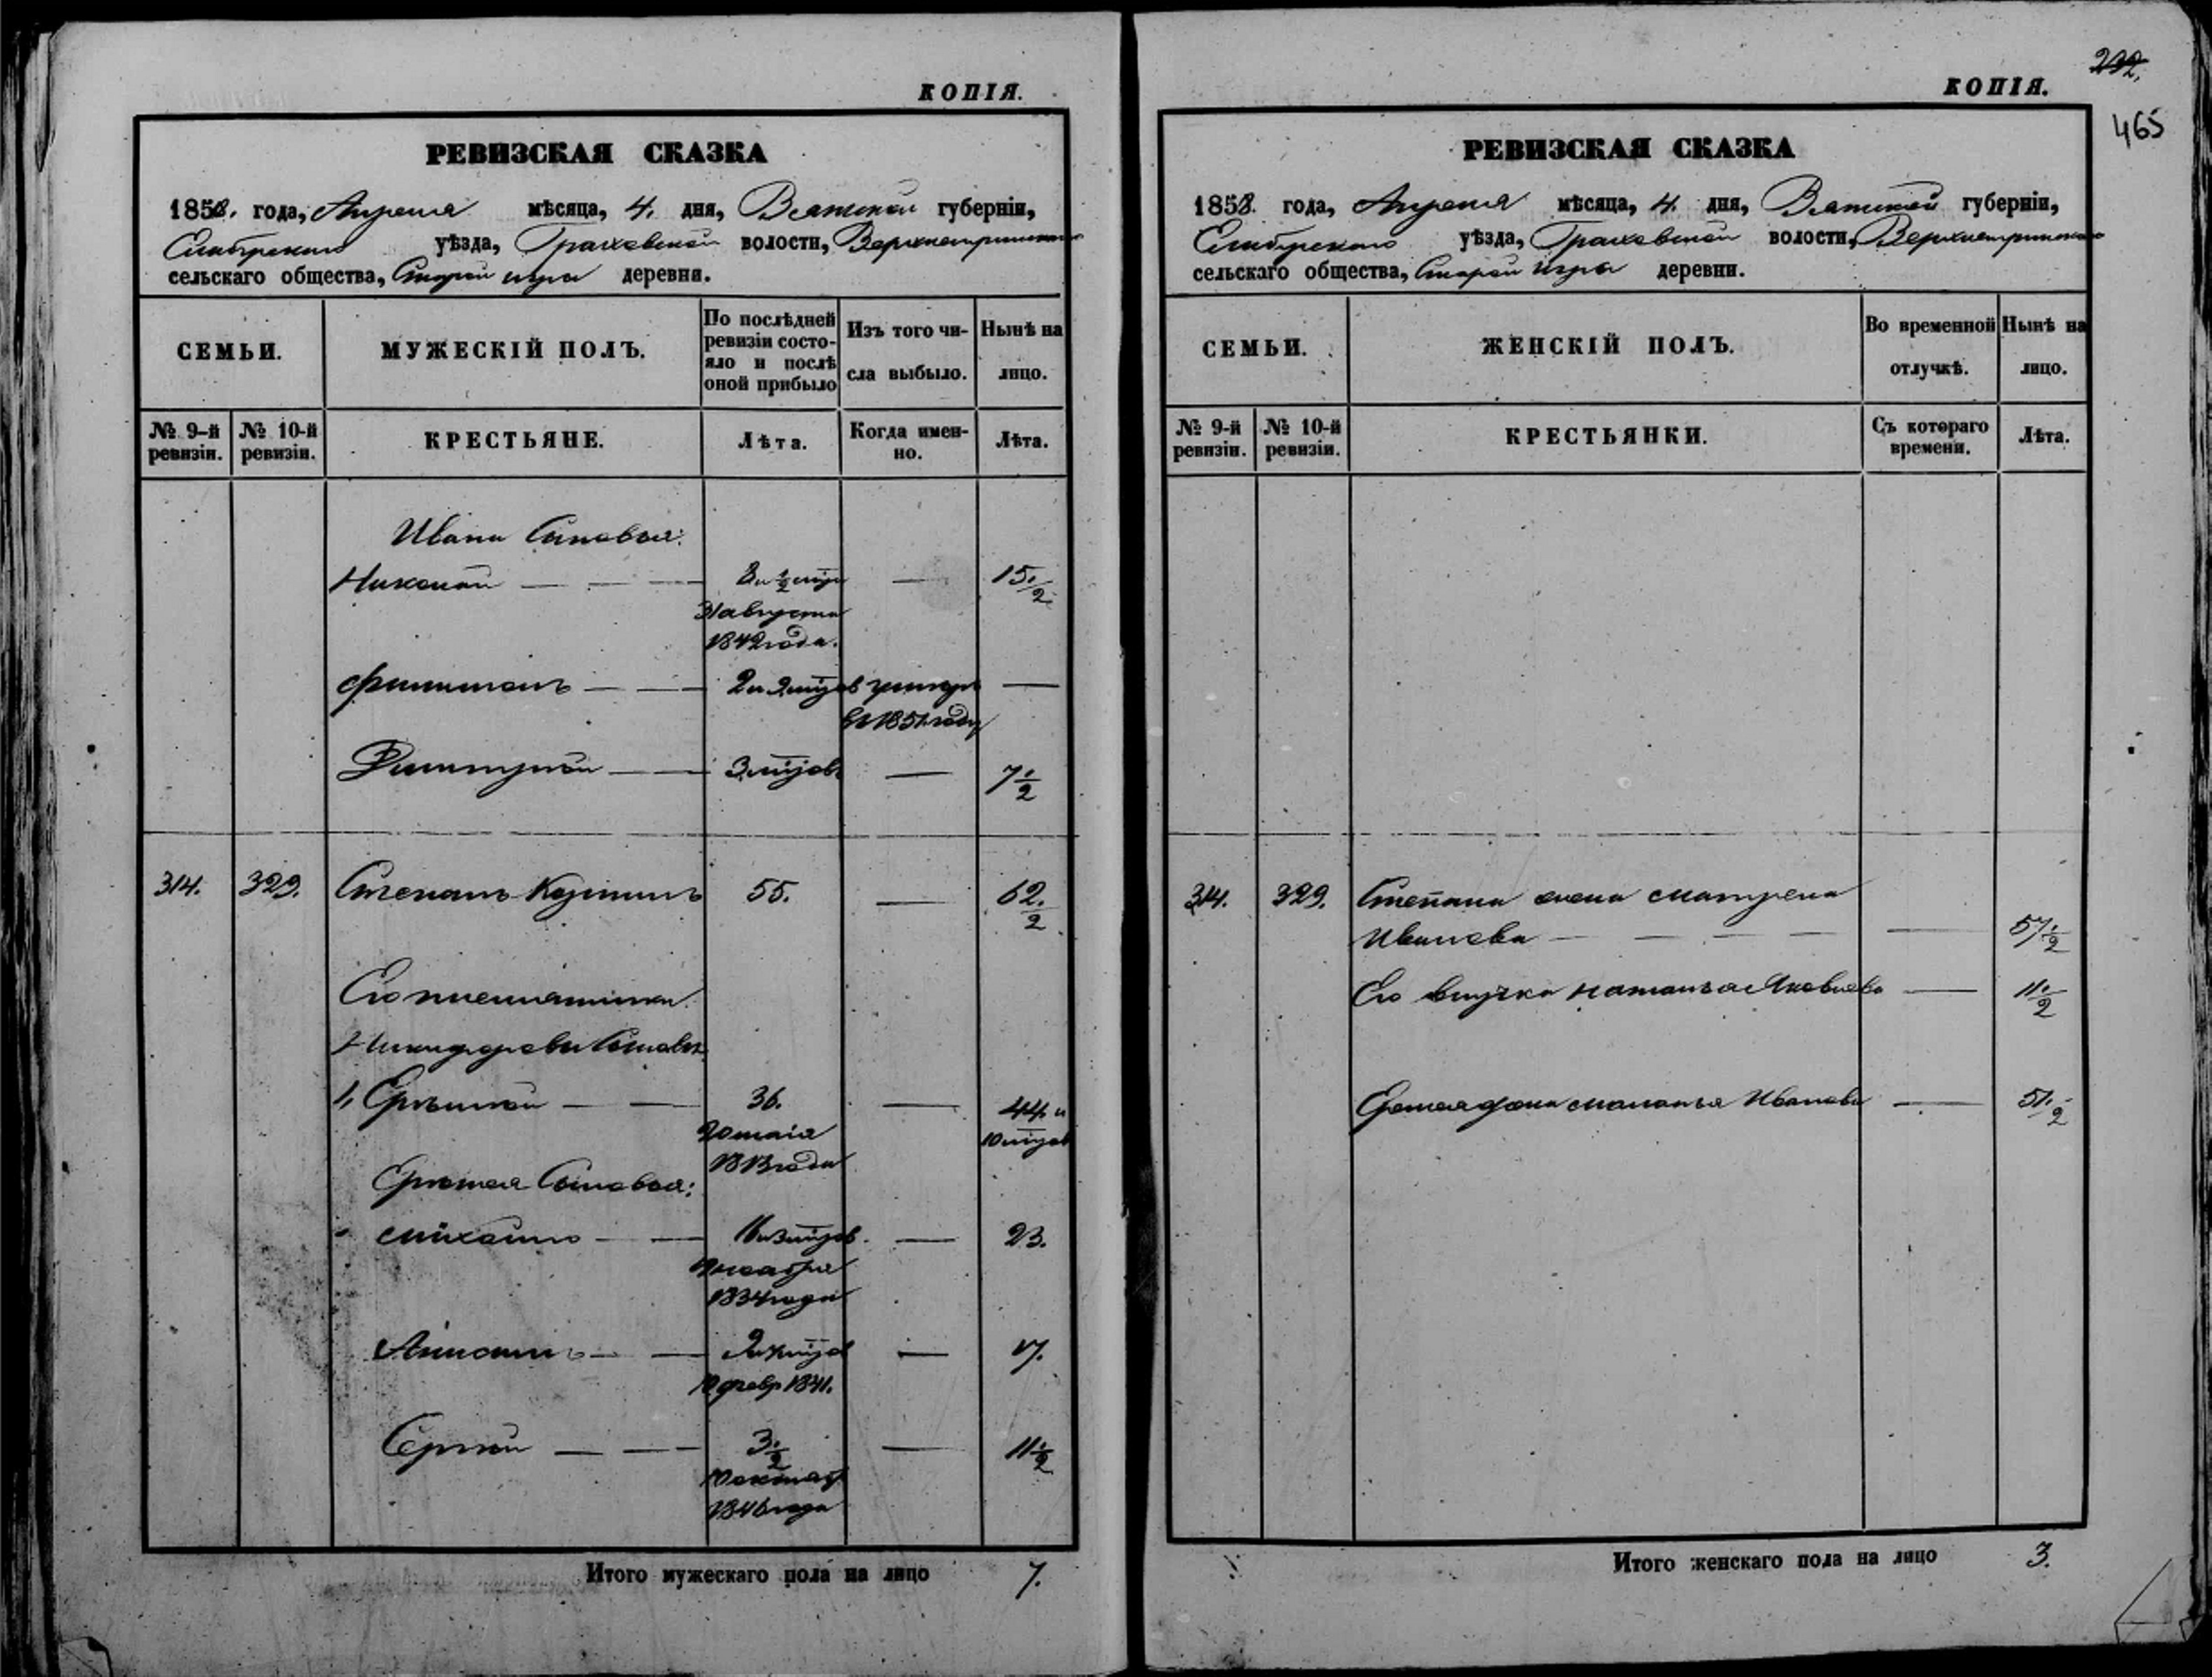 КОПІЯ.
РЕВИЗСКАЯ СКАЗКА
1858. года, Апреля мѣсяца, 4. дня, Вятской губерніи,
Елабужскаго уѣзда, Граховской волости,
сельскаго общества, Старой игры деревни.
СЕМЬИ.
МУЖЕСКІЙ ПОЛЪ.
По послѣдней
ревизіи состо-
яло и послѣ
оной прибыло
Изъ того чи-
сла выбыло.
Нынѣ на
лицо.
№ 9-й
ревизіи.
№ 10-й
ревизіи.
КРЕСТЬЯНЕ.
Лѣта.
Когда имен-
но.
Лѣта.
Ивана Сыновья:
Николай — — — 8 и ½ — 15 ½
31 августа
1842 года.
Филипъ — — 2 и 2 мцов умеръ —
въ 1851 году
Димитрій — — 3 мцов — 7 ½
314. 329. Степанъ 55. — 62. ½
Его племянники
Никифоровы Сыновья
1, — — 36. — 44 и
20 маія 10 мцов
1813 года
Сыновья:
Михайло — — 16 и 3 мцов. — 23.
2 ноября
1834 года
— — — 17.
10 февр 1841.
Сергей — — — 3 ½ — 11 ½
10 октяб
1846 года
Итого мужескаго пола на лицо 7.
КОПІЯ.
232.
465
РЕВИЗСКАЯ СКАЗКА
1858. года, Апреля мѣсяца, 4. дня, Вятской губерніи,
Елабужскаго уѣзда, Граховской волости,
сельскаго общества, Старой Игры деревни.
СЕМЬИ.
ЖЕНСКІЙ ПОЛЪ.
Во временной
отлучкѣ.
Нынѣ на
лицо.
№ 9-й
ревизіи.
№ 10-й
ревизіи.
КРЕСТЬЯНКИ.
Съ котораго
времени.
Лѣта.
314. 329. Степана жена Матрена
Иванова — — — — — 57 ½
Его внучка Наталья Яковлева — 11 ½
жена Маланья Иванова — 51. ½
Итого женскаго пола на лицо 3.